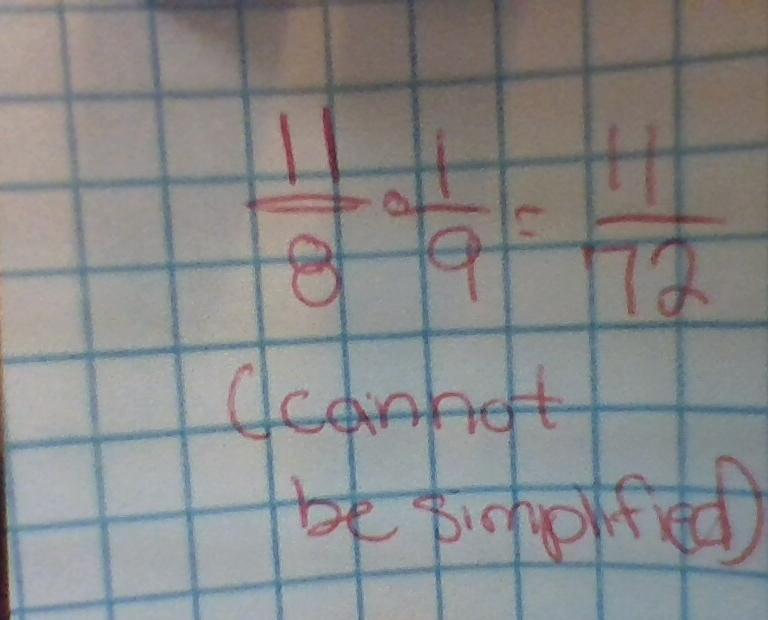 11/8 · 1/9 = 11/72
(cannot
be simplified)